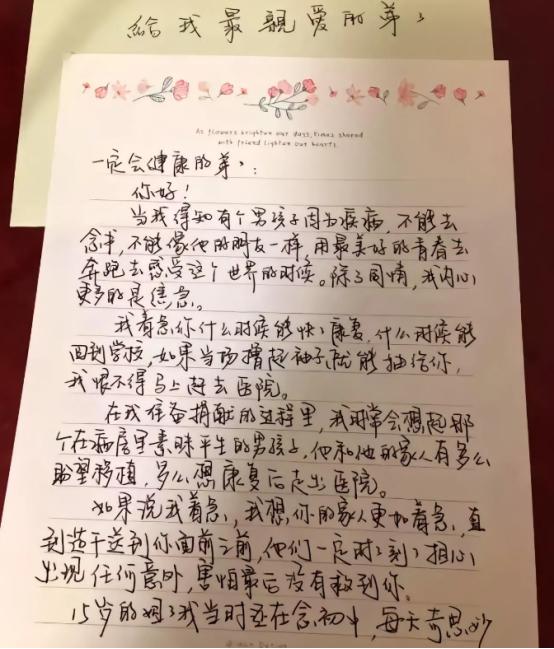 給我最親爱的弟々
As flowers brighten our days, times shared
with friend lighten our hearts.
一定会健康的弟々:
你好!
当我得知有个男孩子因为疾病,不能去
念书,不能像他的朋友一样,用最美好的青春去
奔跑去感受这个世界的时候。除了同情,我内心
更多的是焦急。
我着急你什么时候能快々康复,什么时候能
回到学校,如果当场撸起袖子就能抽给你,
我恨不得马上赶去医院。
在我准备捐献的过程里,我时常会想起那
个在病房里素昧平生的男孩子,他和他的家人有多么
盼望移植,多么想康复后走出医院。
如果说我着急,我想,你的家人更加着急,直
到造干送到你面前之前,他们一定时々刻々担心
出现任何意外,害怕最后没有救到你。
15岁的姐々我当时还在念初中,每天奇思妙